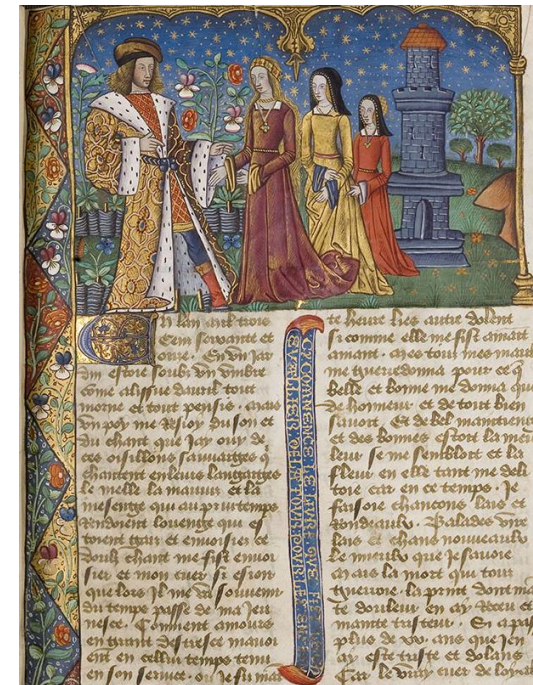 En lan mil trois
Cens soixante et
onze. En un jar
din estoie soubz un umbre
come alissue davril tout
morne et tout pensis. mais
un poy me resioy du son et
du chant que jay ouy de
ces oisillons sauvaiges qui
chantent en leurs langaiges
le merle la mauvis et la
mesenge qui au printemps
rendoient louenge qui es
toient gais et envoisier ce
doulz chant me fist envoi
sier et mon cuer si esioir
que lors il me va souvenir
du temps passe de ma jeu
nesce. Comment amours
en grant destresce mavoi
ent en cellui temps tenu
en son service. ou je fu mai
CY COMMENCE LE LIVRE QUE FIST
CHEVALIER DE LA TOUR POUR
te heure liez autre dolent
si comme elle me fist amant
amant. mes tous mes maulx
me guerredonna pour ce q
belle et bonne me donna qui
de honneur et de tout bien
savoit. Et de bel maintieng
et des bonnes estoit la meil
leur se me sembloit et la
fleur en elle tant me deli
toie car en ce temps. Je
faisoie chancons lais et
rondeaulx. Balades vire
lais et chans nouveaulx
le mieulx que je savoie
mais la mort qui tout
guerroie. la print dont mai
te douleur en ay receu et
mainte tristeur. Si a pas
plus de xx. ans que jen
ay este triste et dolans
Car le vray cuer de loyal